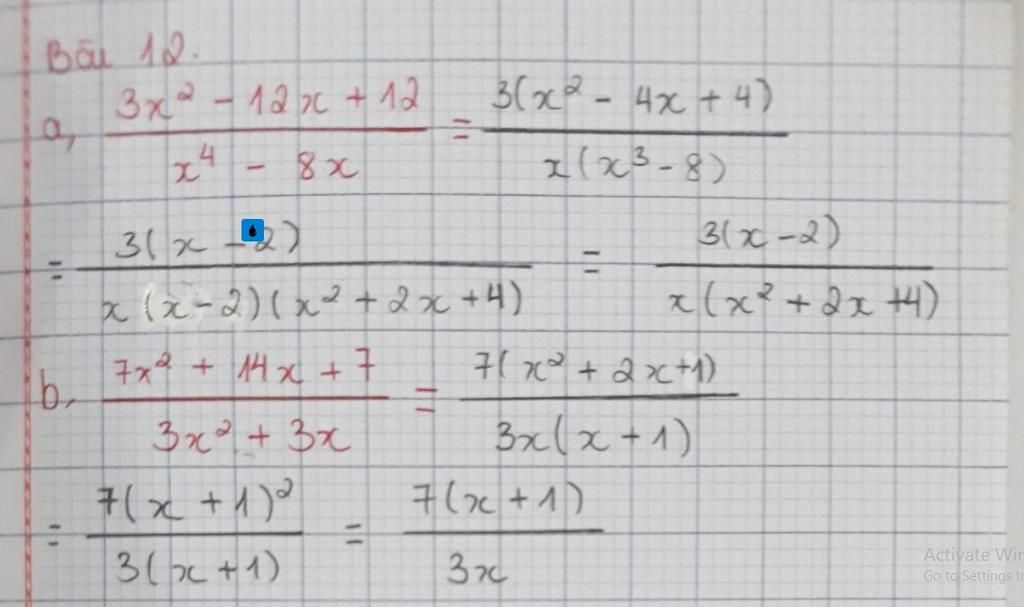 Bài 12.
a, (3x² - 12x + 12)/(x⁴ - 8x) = 3(x² - 4x + 4)/x(x³ - 8)
= 3(x - 2)/x(x - 2)(x² + 2x + 4) = 3(x - 2)/x(x² + 2x + 4)
b, (7x² + 14x + 7)/(3x² + 3x) = 7(x² + 2x + 1)/3x(x + 1)
= 7(x + 1)²/3(x + 1) = 7(x + 1)/3x
Activate Win
Go to Settings to